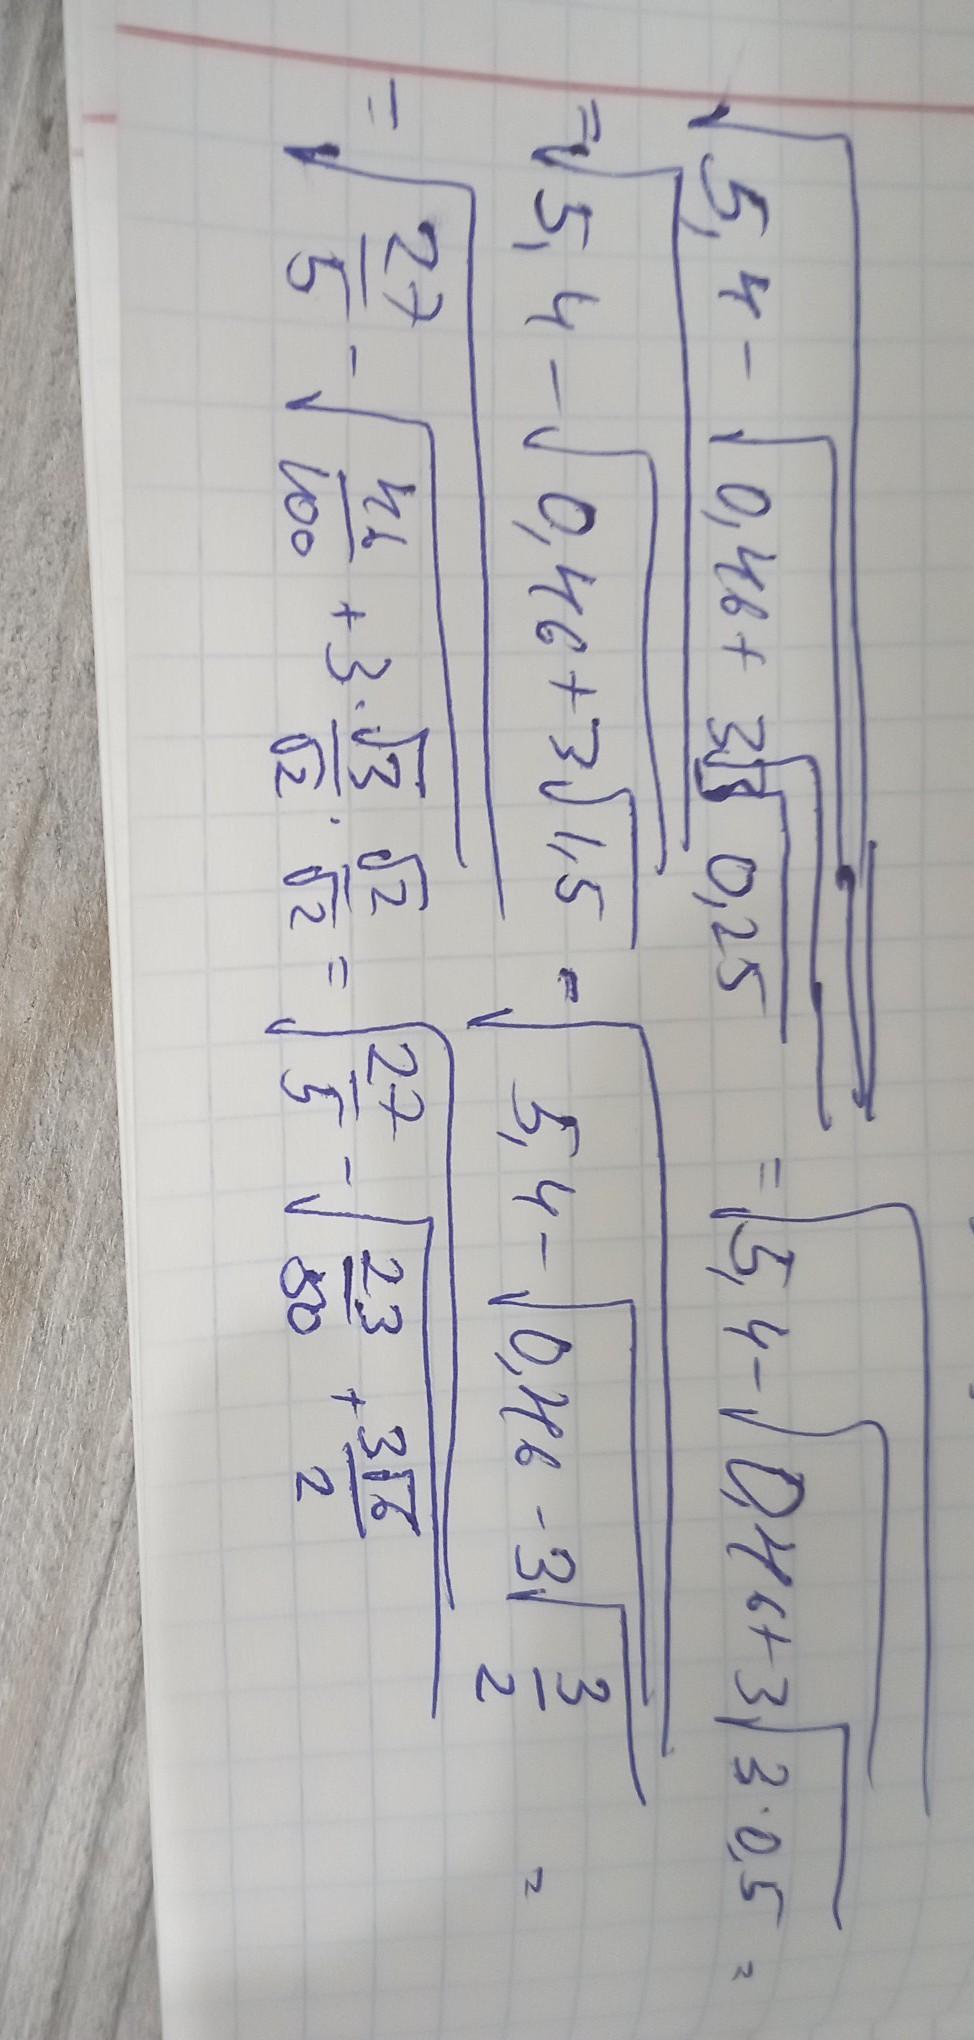 √(5,4 - √(0,46 + 3√(3√0,25))) = √(5,4 - √(0,46 + 3√(3·0,5))) =
= √(5,4 - √(0,46 + 3√1,5)) = √(5,4 - √(0,46 - 3√(3/2))) =
= √(27/5 - √(46/100 + 3·√3/√2 · √2/√2)) = √(27/5 - √(23/50 + 3√6/2))